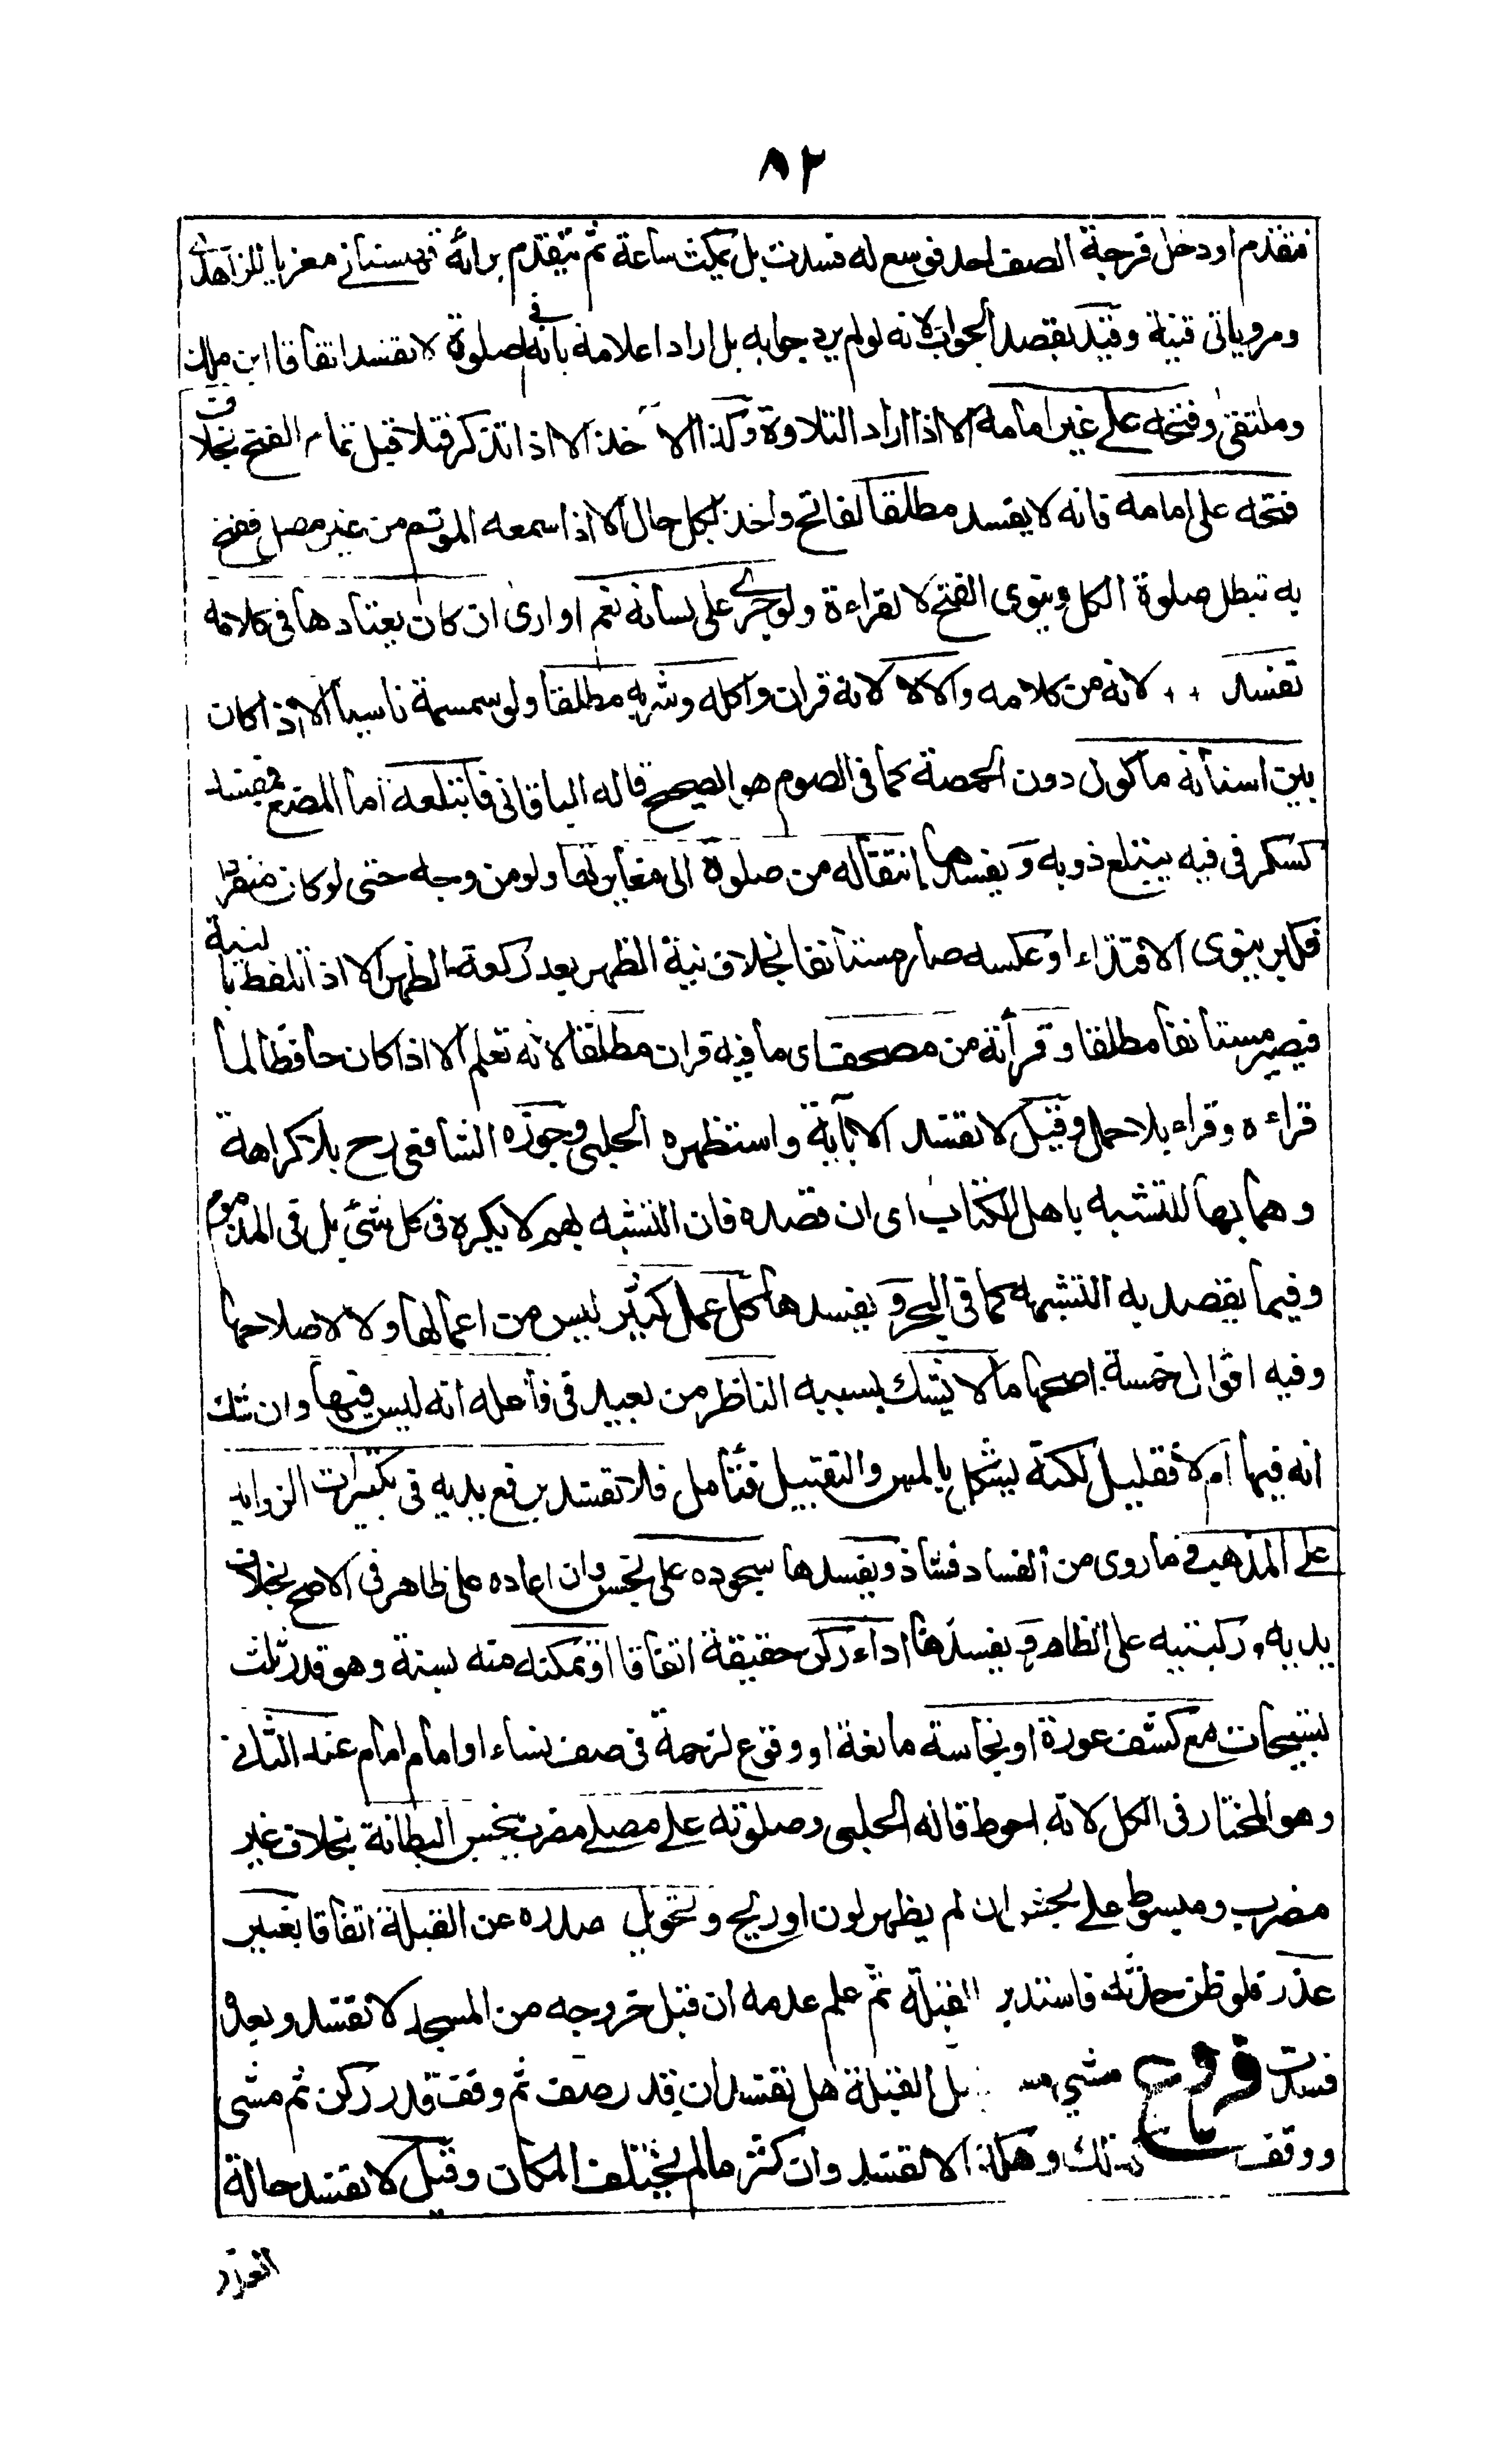 ٨٢
فتقدم او دخل فرجة الصف احد فوسع له فسدت بل يمكث ساعة ثم يتقدم برائه قهستاني معزيا للزاهدى
ومر وياتى قنية وقيد بقصد الجواب لانه لو لم يرد جوابه بل اراد اعلامه بانه فى الصلوة لا تفسد اتفاقا ابن ملك
وملتقى وفتحه على غير امامه الا اذا اراد التلاوة وكذا الاخذ الا اذا تذكر فتلا قبل تمام الفتح بخلاف
فتحه على امامه فانه لا يفسد مطلقا لفاتح واخذ بكل حال الا اذا سمعه الموتم من غير مصل ففتح
به تبطل صلوة الكل وينوى الفتح لا القراءة ولو جرى على لسانه نعم او ارى ان كان يعتادها فى كلامه
تفسد لانه من كلامه والا لا لانه قران واكله وشربه مطلقا ولو سمسمة ناسيا الا اذا كان
بين اسنانه ماكول دون الحمصة كما فى الصوم هو الصحيح قاله الباقانى فابتلعه اما المضغ فمفسد
كسكر فى فيه يبتلع ذوبه ويفسدها انتقاله من صلوة الى مغايرتها ولو من وجه حتى لو كان منفردا
فكبر ينوى الاقتداء او عكسه صار مستانفا بخلاف نية الظهر بعد ركعة الظهر الا اذا تلفظ بالنية
فيصير مستانفا مطلقا وقرأته من مصحف اى ما فيه قران مطلقا لانه تعلم الا اذا كان حافظا لما
قراءه وقراء بلا حمل وقيل لا تفسد الا بآية واستظهره الحلبى وجوزه الشافعى رح بلا كراهة
وهما بها للتشبه باهل الكتاب اى ان قصده فان التشبه بهم لا يكره فى كل شئ بل فى المذموم
وفيما يقصد به التشبه كما فى البحر ويفسدها كل عمل كثير ليس من اعمالها ولا لاصلاحها
وفيه اقوال خمسة اصحها ما لا يشك بسببه الناظر من بعيد فى فاعله انه ليس فيها وان شك
انه فيها ام لا فقليل لكنه يشكل بالمس والتقبيل فتأمل فلا تفسد برفع يديه فى تكبيرات الزوايد
على المذهب وما روى من الفساد فشاذ ويفسدها سجوده على نجس وان اعاده على طاهر فى الاصح بخلاف
يديه وركبتيه على الظاهر ويفسدها اداء ركن حقيقة اتفاقا او تمكنه منه بسنة وهو قدر ثلث
تسبيحات مع كشف عورة او نجاسة مانعة او وقوع لزحمة فى صف نساء او امام امام عند الثانى
وهو المختار فى الكل لانه احوط قاله الحلبى وصلوته على مصلى مضرب نجس البطانة بخلاف غير
مضرب ومبسوط على نجس ان لم يظهر لون او ريح وتحويل صدره عن القبلة اتفاقا بغير
عذر فلو ظن حدثه فاستدبر القبلة ثم علم عدمه ان قبل خروجه من المسجد لا تفسد وبعده
فسدت فروع مشى القبلة هل تفسد ان قدر صف ثم وقف قدر ركن ثم مشى
ووقف كذلك وهكذا لا تفسد وان كثر ما لم يختلف المكان وقيل لا تفسد حالة
العذر